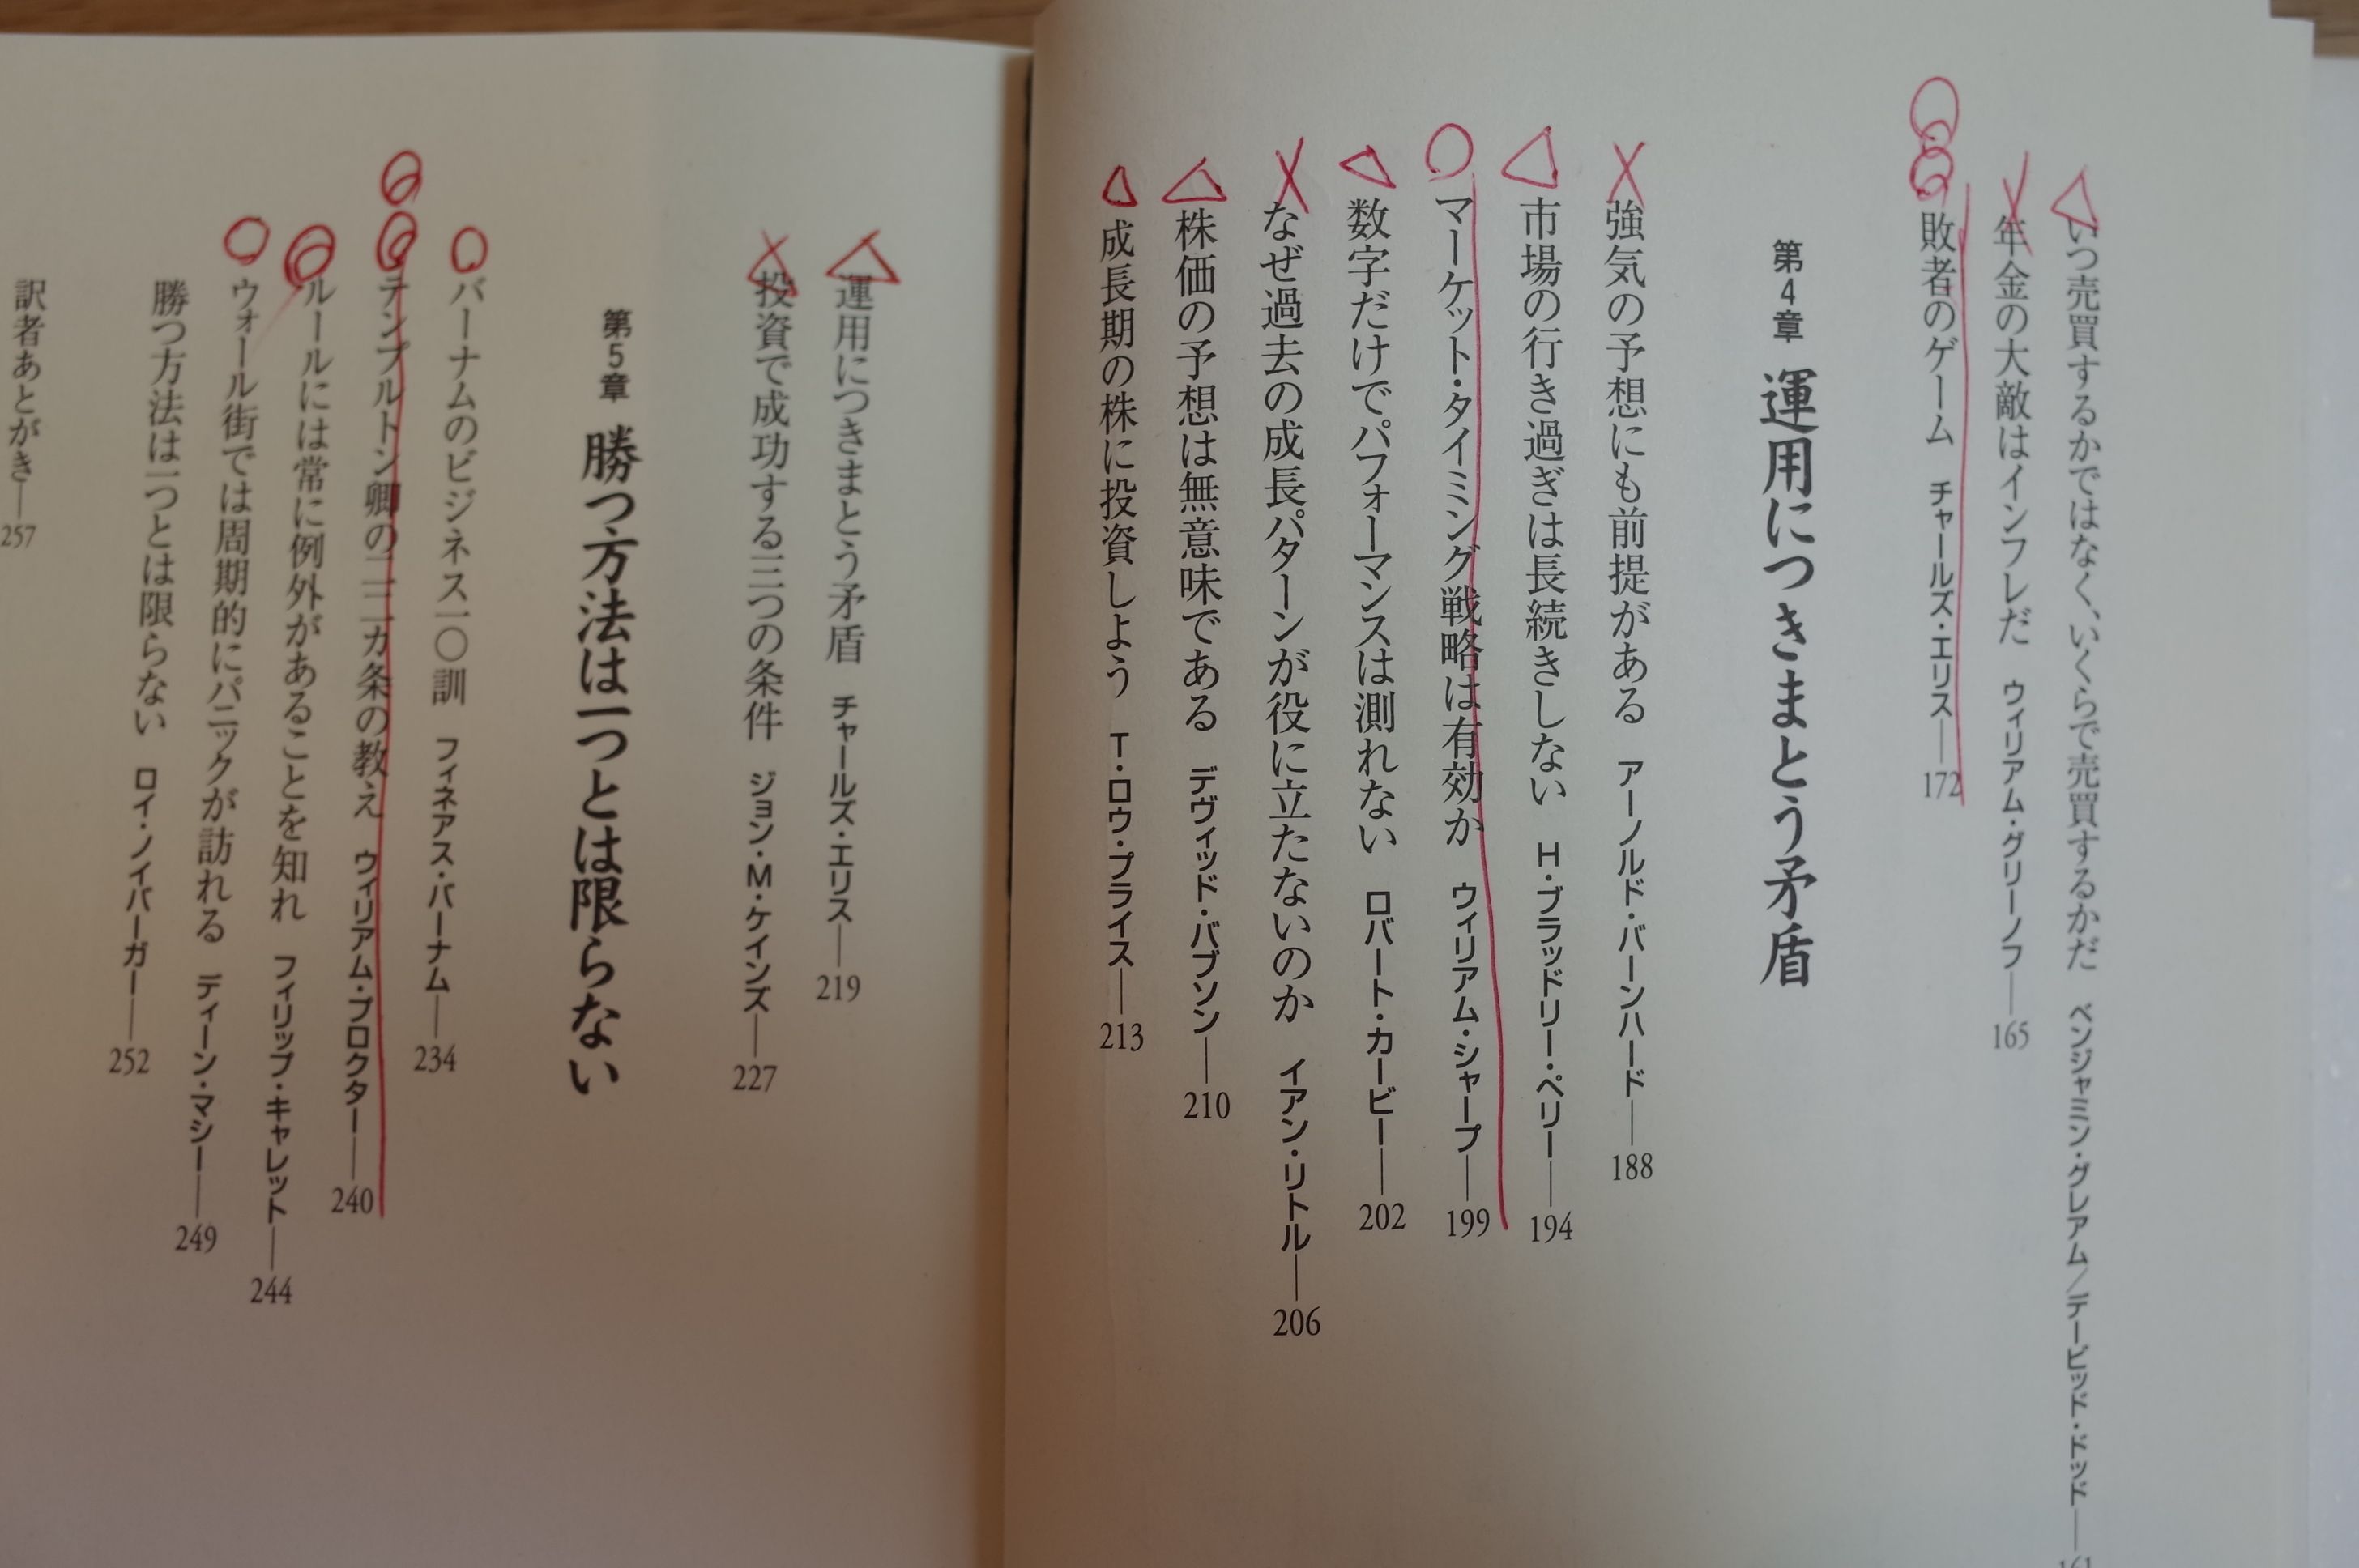 いつ売買するかではなく、いくらで売買するかだ ベンジャミン・グレアム／デービッド・ドッド―161
年金の大敵はインフレだ ウィリアム・グリーノフ―165
敗者のゲーム チャールズ・エリス―172
第4章 運用につきまとう矛盾
強気の予想にも前提がある アーノルド・バーンハード―188
市場の行き過ぎは長続きしない H・ブラッドリー・ペリー―194
マーケット・タイミング戦略は有効か ウィリアム・シャープ―199
数字だけでパフォーマンスは測れない ロバート・カービー―202
なぜ過去の成長パターンが役に立たないのか イアン・リトル―206
株価の予想は無意味である デヴィッド・バブソン―210
成長期の株に投資しよう T・ロウ・プライス―213
運用につきまとう矛盾 チャールズ・エリス―219
投資で成功する三つの条件 ジョン・M・ケインズ―227
第5章 勝つ方法は一つとは限らない
バーナムのビジネス一〇訓 フィネアス・バーナム―234
テンプルトン卿の二二カ条の教え ウィリアム・プロクター―240
ルールには常に例外があることを知れ フィリップ・キャレット―244
ウォール街では周期的にパニックが訪れる ディーン・マシー―249
勝つ方法は一つとは限らない ロイ・ノイバーガー―252
訳者あとがき―257